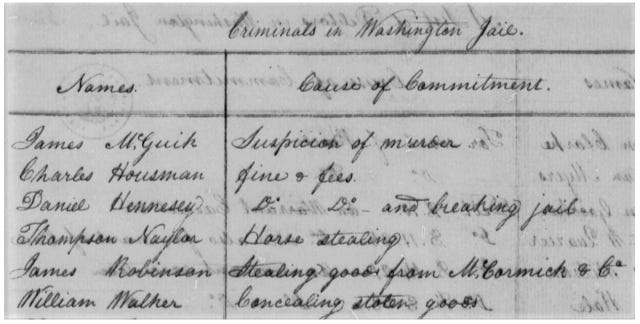 Criminals in Washington Jail.
Names. Cause of Commitment.
James McGuik Suspicion of murder
Charles Housman fine & fees.
Daniel Hennesey Do Do and breaking jail
Thompson Naylor Horse stealing
James Robinson Stealing goods from McCormick & Co
William Walker Concealing stolen goods